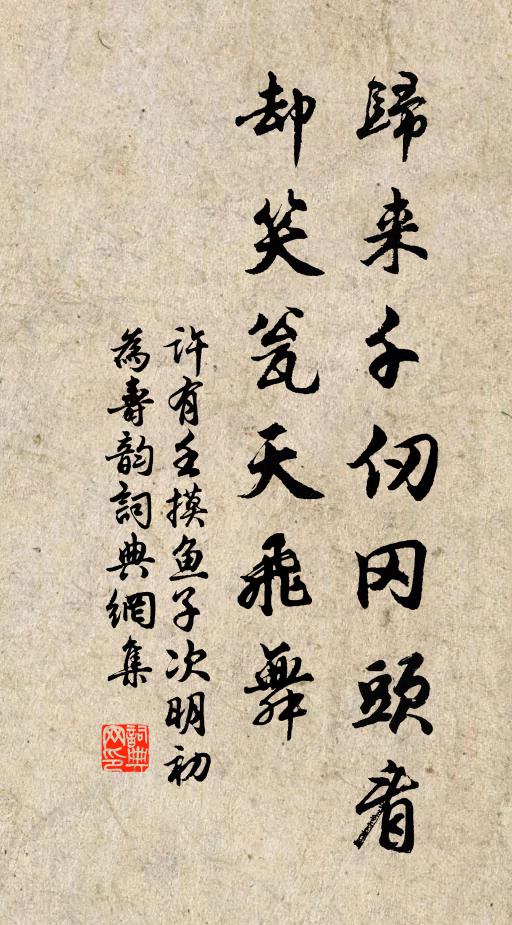 歸来千仞冈頭看
却笑瓮天飛舞
许有壬摸鱼子次明初
為壽韵詞典網集
詞典网印